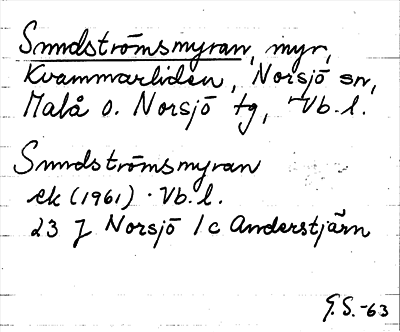 Sundströmsmyran, myr,
Kvammarliden, Norsjö sn,
Malå o. Norsjö tg, Vb. l.
Sundströmsmyran
ek (1961) . Vb. l.
23 J Norsjö 1c Anderstjärn
G. S. -63